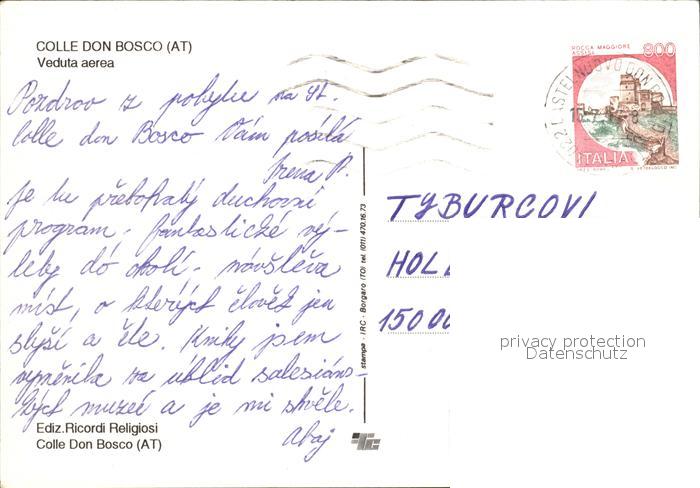 COLLE DON BOSCO (AT)
Veduta aerea
Pozdrov z pobytu na st.
Colle don Bosco Vám posílá
Irena P.
Je tu přebohatý duchovní
program - fantastické vý-
lety do okolí - návštěva
míst, o kterých člověk jen
slyší a čte. Knihy jsem
vyměnila za úklid salesiáns-
kých muzeí a je mi skvěle.
Ahoj
Ediz.Ricordi Religiosi
Colle Don Bosco (AT)
stampa - IRC - Borgaro (TO) tel. (011) 470.16.73
ROCCA MAGGIORE
ASSISI
800
ITALIA
TYBURCOVI
HOL
150 00
privacy protection
Datenschutz